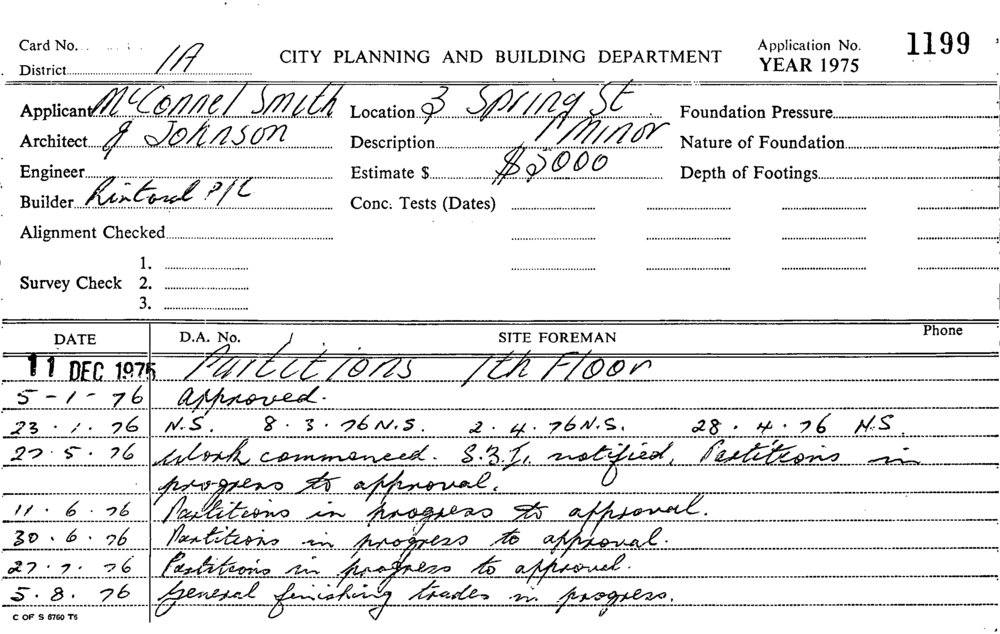 Card No.
Application No. 1199
District 1A
CITY PLANNING AND BUILDING DEPARTMENT
YEAR 1975
Applicant McConnel Smith
Location 3 Spring St
Foundation Pressure
Architect & Johnson
Description Minor
Nature of Foundation
Engineer
Estimate $ $2000
Depth of Footings
Builder P/L
Conc. Tests (Dates)
Alignment Checked
1.
Survey Check 2.
3.
DATE D.A. No. SITE FOREMAN Phone
11 DEC 1975 Partitions Floor
5-1-76 approved.
23.1.76 N.S. 8.3.76 N.S. 2.4.76 N.S. 28.4.76 N.S.
27.5.76 Work commenced. notified, Partitions in
progress to approval.
11.6.76 Partitions in progress to approval.
30.6.76 Partitions in progress to approval.
27.7.76 Partitions in progress to approval.
5.8.76 General finishing trades in progress.
C OF S 6760 T6